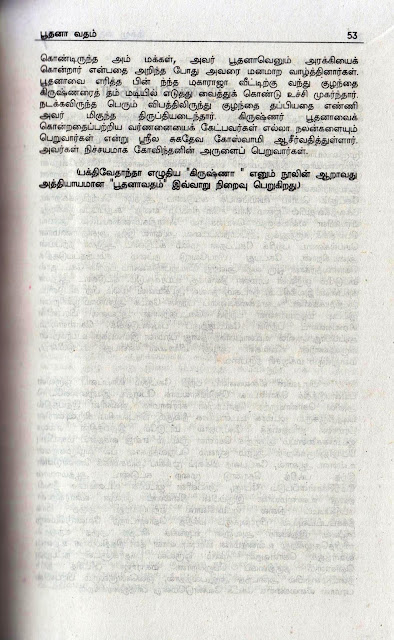 பூதனா வதம் 53
கொண்டிருந்த அம் மக்கள், அவர் பூதனாவெனும் அரக்கியைக்
கொன்றார் என்பதை அறிந்த போது அவரை மனமாற வாழ்த்தினார்கள்.
பூதனாவை எரித்த பின் நந்த மகாராஜா வீட்டிற்கு வந்து குழந்தை
கிருஷ்ணரைத் தம் மடியில் எடுத்து வைத்துக் கொண்டு உச்சி முகர்ந்தார்.
நடக்கவிருந்த பெரும் விபத்திலிருந்து குழந்தை தப்பியதை எண்ணி
அவர் மிகுந்த திருப்தியடைந்தார். கிருஷ்ணர் பூதனாவைக்
கொன்றதைப்பற்றிய வர்ணனையைக் கேட்பவர்கள் எல்லா நலன்களையும்
பெறுவார்கள் என்று ஸ்ரீல சுகதேவ கோஸ்வாமி ஆசீர்வதித்துள்ளார்.
அவர்கள் நிச்சயமாக கோவிந்தனின் அருளைப் பெறுவார்கள்.
(பக்திவேதாந்தா எழுதிய "கிருஷ்ணா " எனும் நூலின் ஆறாவது
அத்தியாயமான "பூதனாவதம்" இவ்வாறு நிறைவு பெறுகிறது)